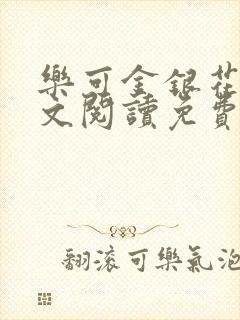 樂可金銀花
文閱讀免費
翻滾可樂氣泡